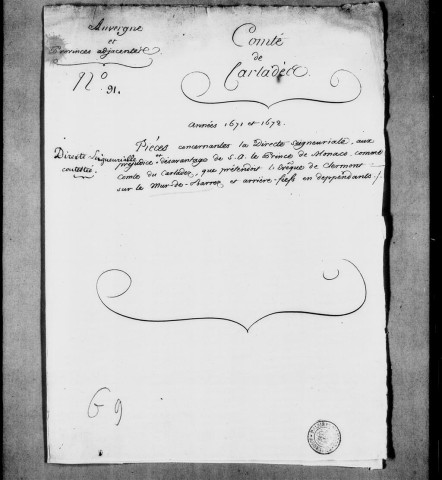 Auvergne
et
Provinces adjacentes
N.º
91.
Comté
de
Carladès.
années 1671 et 1672.
Directe Seigneurielle
contestée
Piéces concernantes la Directe Seigneuriale, aux
préjudice et désavantage de S. A. le Prince de Monaco, comme
Comte du Carladez, que prétendent l'Evêque de Clermont
sur le Mur-de-Barrez et arrière-fiefs en deppendants./.
G 9